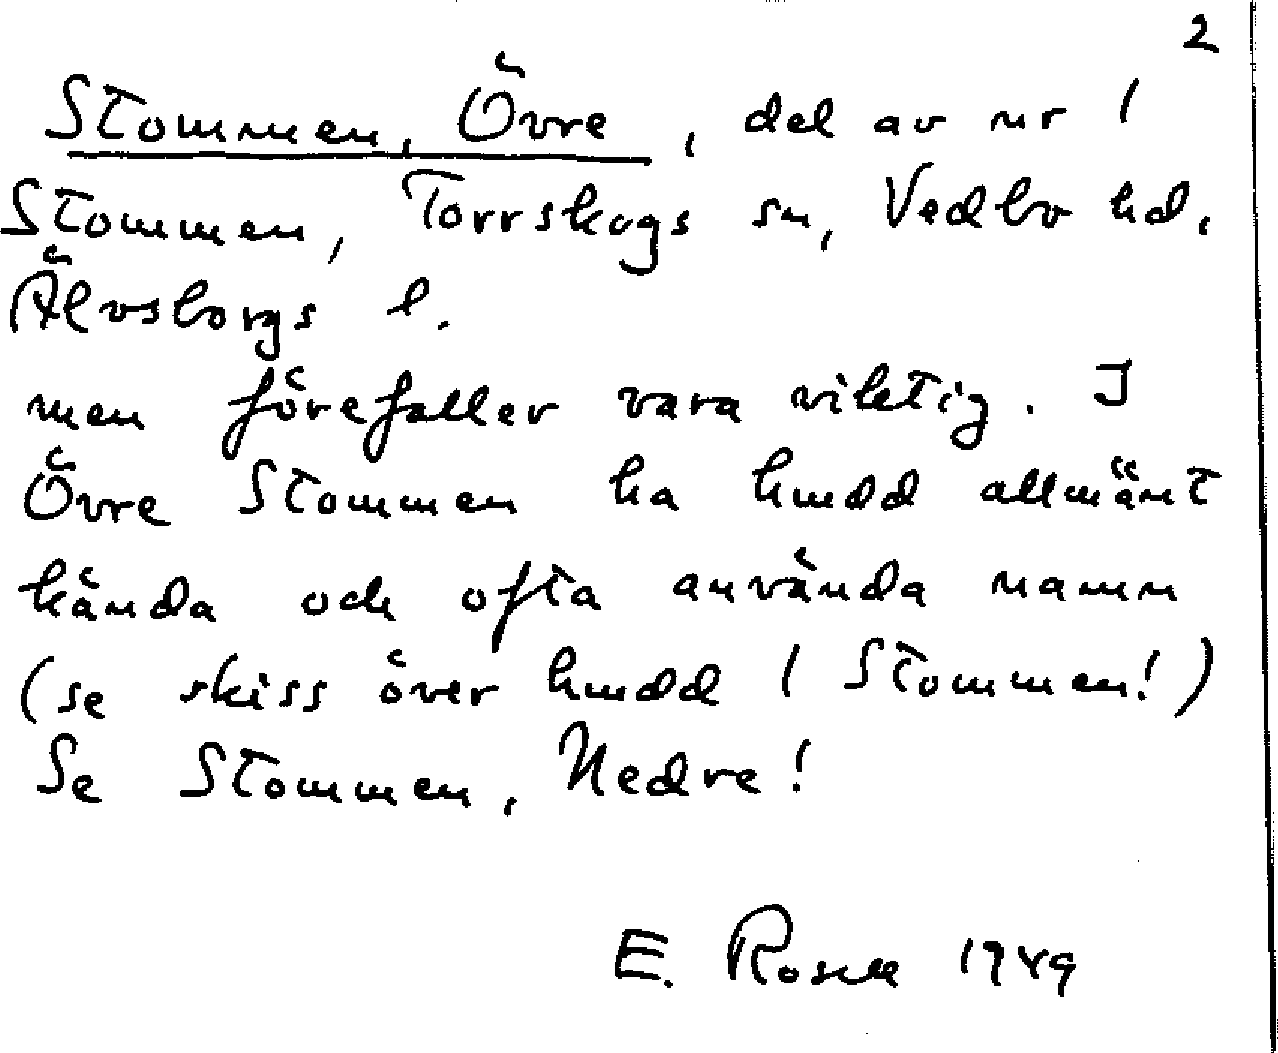 2
Stommen, Övre, del av nr 1
Stommen, Torrskogs sn, Vedbo hd,
Älvsborgs l.
men förefaller vara viktig. I
Övre Stommen ha hmdd allmänt
kända och ofta använda namn
(se skiss över hmdd 1 Stommen!)
Se Stommen, Nedre!
E. Rosell 1949